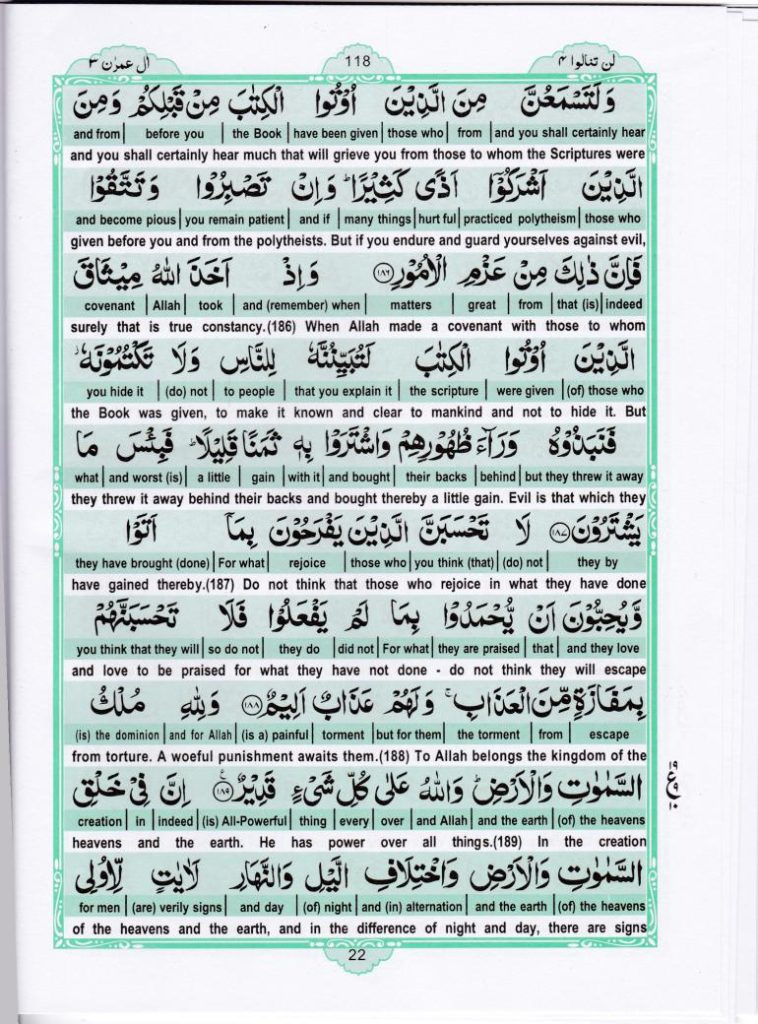 اٰل عمرٰن ٣ 118 لن تنالوا ٤
وَلَتَسْمَعُنَّ مِنَ الَّذِيْنَ اُوْتُوا الْكِتٰبَ مِنْ قَبْلِكُمْ وَمِنَ
and from | before you | the Book | have been given | those who | from | and you shall certainly hear
and you shall certainly hear much that will grieve you from those to whom the Scriptures were
الَّذِيْنَ اَشْرَكُوْٓا اَذًى كَثِيْرًا ؕ وَاِنْ تَصْبِرُوْا وَتَتَّقُوْا
and become pious | you remain patient | and if | many things | hurt ful | practiced polytheism | those who
given before you and from the polytheists. But if you endure and guard yourselves against evil,
فَاِنَّ ذٰلِكَ مِنْ عَزْمِ الْاُمُوْرِ ۝١٨٦ وَاِذْ اَخَذَ اللّٰهُ مِيْثَاقَ
covenant | Allah | took | and (remember) when | matters | great | from | that (is) | indeed
surely that is true constancy.(186) When Allah made a covenant with those to whom
الَّذِيْنَ اُوْتُوا الْكِتٰبَ لَتُبَيِّنُنَّهٗ لِلنَّاسِ وَلَا تَكْتُمُوْنَهٗ ۫
you hide it | (do) not | to people | that you explain it | the scripture | were given | (of) those who
the Book was given, to make it known and clear to mankind and not to hide it. But
فَنَبَذُوْهُ وَرَآءَ ظُهُوْرِهِمْ وَاشْتَرَوْا بِهٖ ثَمَنًا قَلِيْلًا ؕ فَبِئْسَ مَا
what | and worst (is) | a little | gain | with it | and bought | their backs | behind | but they threw it away
they threw it away behind their backs and bought thereby a little gain. Evil is that which they
يَشْتَرُوْنَ ۝١٨٧ لَا تَحْسَبَنَّ الَّذِيْنَ يَفْرَحُوْنَ بِمَآ اَتَوْا
they have brought (done) | For what | rejoice | those who | you think (that) | (do) not | they by
have gained thereby.(187) Do not think that those who rejoice in what they have done
وَّيُحِبُّوْنَ اَنْ يُّحْمَدُوْا بِمَا لَمْ يَفْعَلُوْا فَلَا تَحْسَبَنَّهُمْ
you think that they will | so do not | they do | did not | For what | they are praised | that | and they love
and love to be praised for what they have not done - do not think they will escape
بِمَفَازَةٍ مِّنَ الْعَذَابِ ۚ وَلَهُمْ عَذَابٌ اَلِيْمٌ ۝١٨٨ وَلِلّٰهِ مُلْكُ
(is) the dominion | and for Allah | (is a) painful | torment | but for them | the torment | from | escape
from torture. A woeful punishment awaits them.(188) To Allah belongs the kingdom of the
السَّمٰوٰتِ وَالْاَرْضِ ؕ وَاللّٰهُ عَلٰى كُلِّ شَيْءٍ قَدِيْرٌ ۝١٨٩ اِنَّ فِيْ خَلْقِ
creation | in | indeed | (is) All-Powerful | thing | every | over | and Allah | and the earth | (of) the heavens
heavens and the earth. He has power over all things.(189) In the creation
السَّمٰوٰتِ وَالْاَرْضِ وَاخْتِلَافِ الَّيْلِ وَالنَّهَارِ لَاٰيٰتٍ لِّاُولِى
for men | (are) verily signs | and day | (of) night | and (in) alternation | and the earth | (of) the heavens
of the heavens and the earth, and in the difference of night and day, there are signs
22